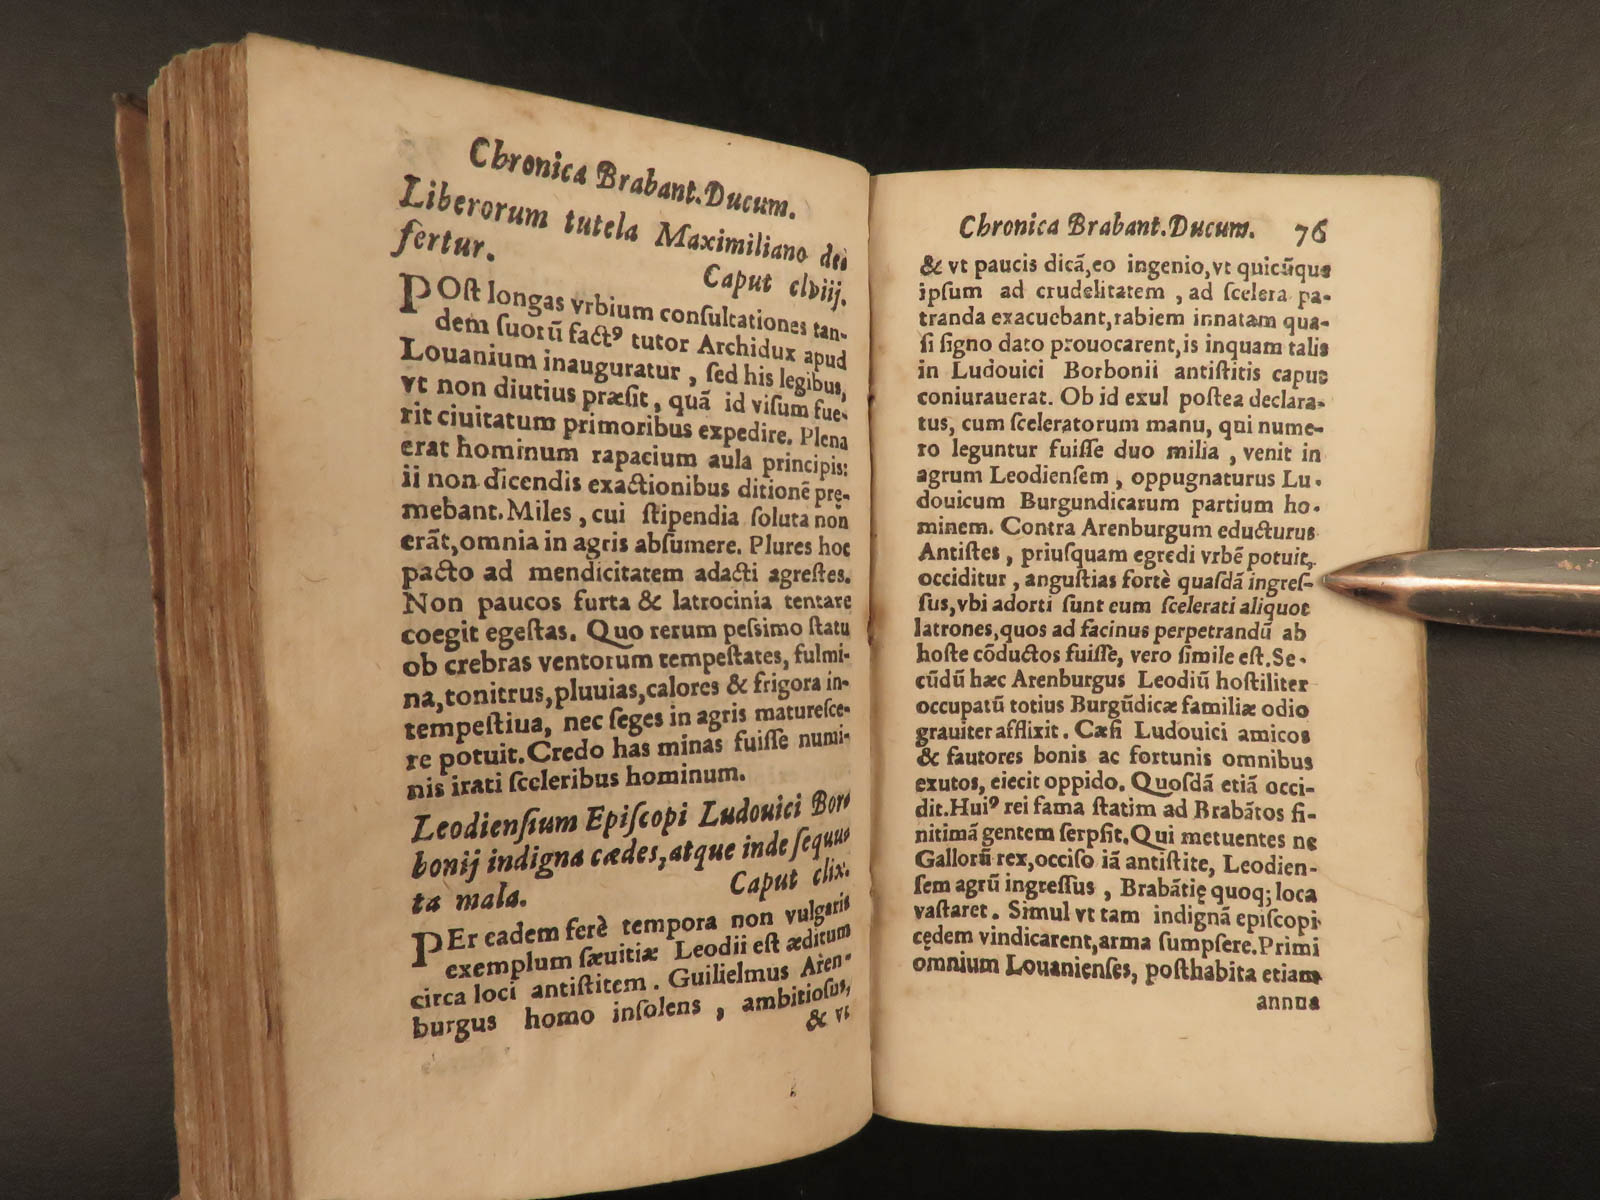 Chronica Brabant.Ducum.
Liberorum tutela Maximiliano de
fertur.
Caput clviij.
POſt longas vrbium conſultationes tan-
dem ſuorũ factꝰ tutor Archidux apud
Louanium inauguratur , ſed his legibus,
vt non diutius præſit , quã id viſum fue-
rit ciuitatum primoribus expedire. Plena
erat hominum rapacium aula principis:
ii non dicendis exactionibus ditionẽ prę-
mebant. Miles , cui ſtipendia ſoluta non
erãt,omnia in agris abſumere. Plures hoc
pacto ad mendicitatem adacti agreſtes.
Non paucos furta & latrocinia tentare
coegit egeſtas. Quo rerum peſsimo ſtatu
ob crebras ventorum tempeſtates, fulmi-
na,tonitrus,pluuias,calores & frigora in-
tempeſtiua, nec ſeges in agris matureſce-
re potuit. Credo has minas fuiſſe numi-
nis irati ſceleribus hominum.
Leodienſium Epiſcopi Ludouici Bor
bonij indigna cædes,atque inde ſequu
ta mala.
Caput clix.
PEr eadem ferè tempora non vulgaris
exemplum ſæuitiæ Leodii eſt æditum
circa loci antiſtitem . Guilielmus Aren-
burgus homo inſolens , ambitioſus,
& vt
Chronica Brabant.Ducum. 76
& vt paucis dicã,eo ingenio,vt quicũque
ipſum ad crudelitatem , ad ſcelera pa-
tranda exacuebant,rabiem innatam qua-
ſi ſigno dato prouocarent,is inquam talis
in Ludouici Borbonii antiſtitis caput
coniurauerat. Ob id exul poſtea declara-
tus, cum ſceleratorum manu, qui nume-
ro leguntur fuiſſe duo milia , venit in
agrum Leodienſem , oppugnaturus Lu-
douicum Burgundicarum partium ho-
minem. Contra Arenburgum educturus
Antiſtes , priuſquam egredi vrbẽ potuit,
occiditur , anguſtias fortè quaſdã ingreſ-
ſus,vbi adorti ſunt eum ſcelerati aliquot
latrones,quos ad facinus perpetrandũ ab
hoſte cõductos fuiſſe, vero ſimile eſt.Se-
cũdũ hæc Arenburgus Leodiũ hoſtiliter
occupatũ totius Burgũdicæ familiæ odio
grauiter afflixit . Cæſi Ludouici amicos
& fautores bonis ac fortunis omnibus
exutos, eiecit oppido. Quoſdã etiã occi-
dit.Huiꝰ rei fama ſtatim ad Brabãtos fi-
nitimã gentem ſerpſit. Qui metuentes ne
Gallorũ rex,occiſo iã antiſtite, Leodien-
ſem agrũ ingreſſus , Brabãtię quoq; loca
vaſtaret . Simul vt tam indignã epiſcopi
cędem vindicarent,arma ſumpſere.Primi
omnium Louanienſes, poſthabita etiam
annus